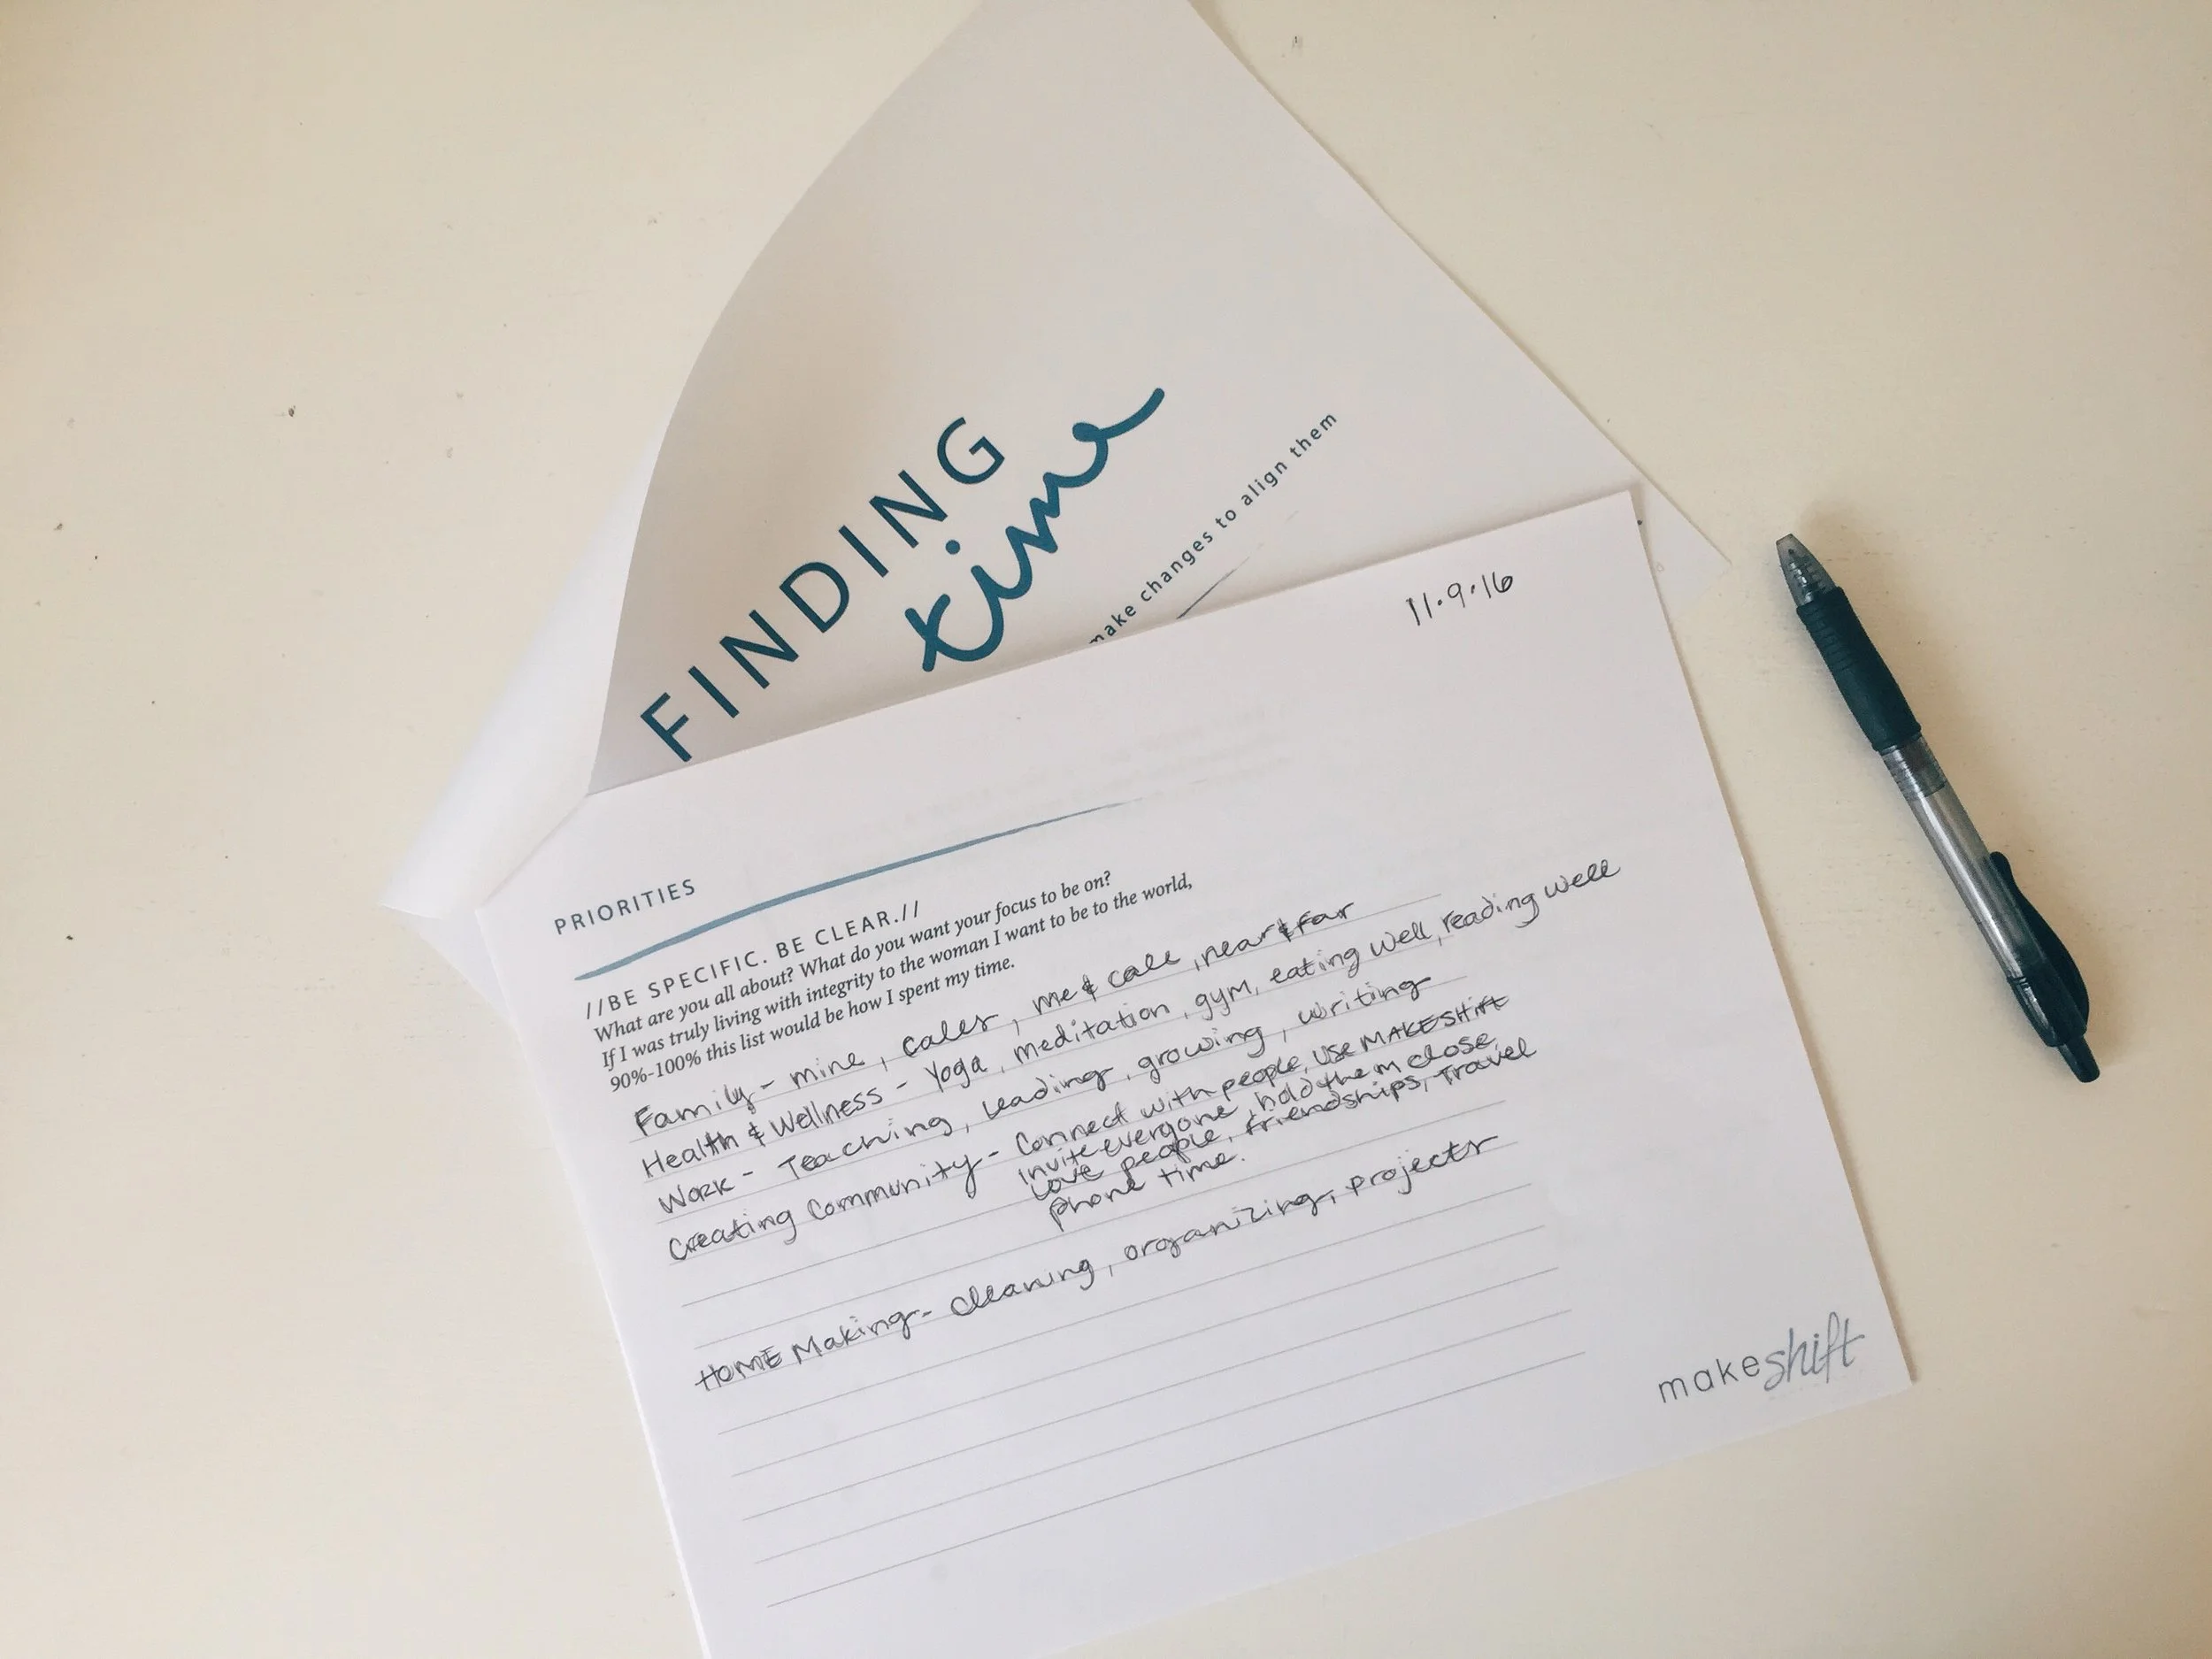 FINDING
time
make changes to align them
11.9.16
PRIORITIES
//BE SPECIFIC. BE CLEAR.//
What are you all about? What do you want your focus to be on?
If I was truly living with integrity to the woman I want to be to the world,
90%-100% this list would be how I spent my time.
Family - mine, cales, me & cale, near & far
Health & Wellness - Yoga, meditation, gym, eating well, reading well
Work - Teaching, leading, growing, writing
Creating Community - Connect with people, use MAKESHift
Invite everyone, hold them close
Love people, friendships, travel
phone time.
HOME Making - cleaning, organizing, projects
makeshift